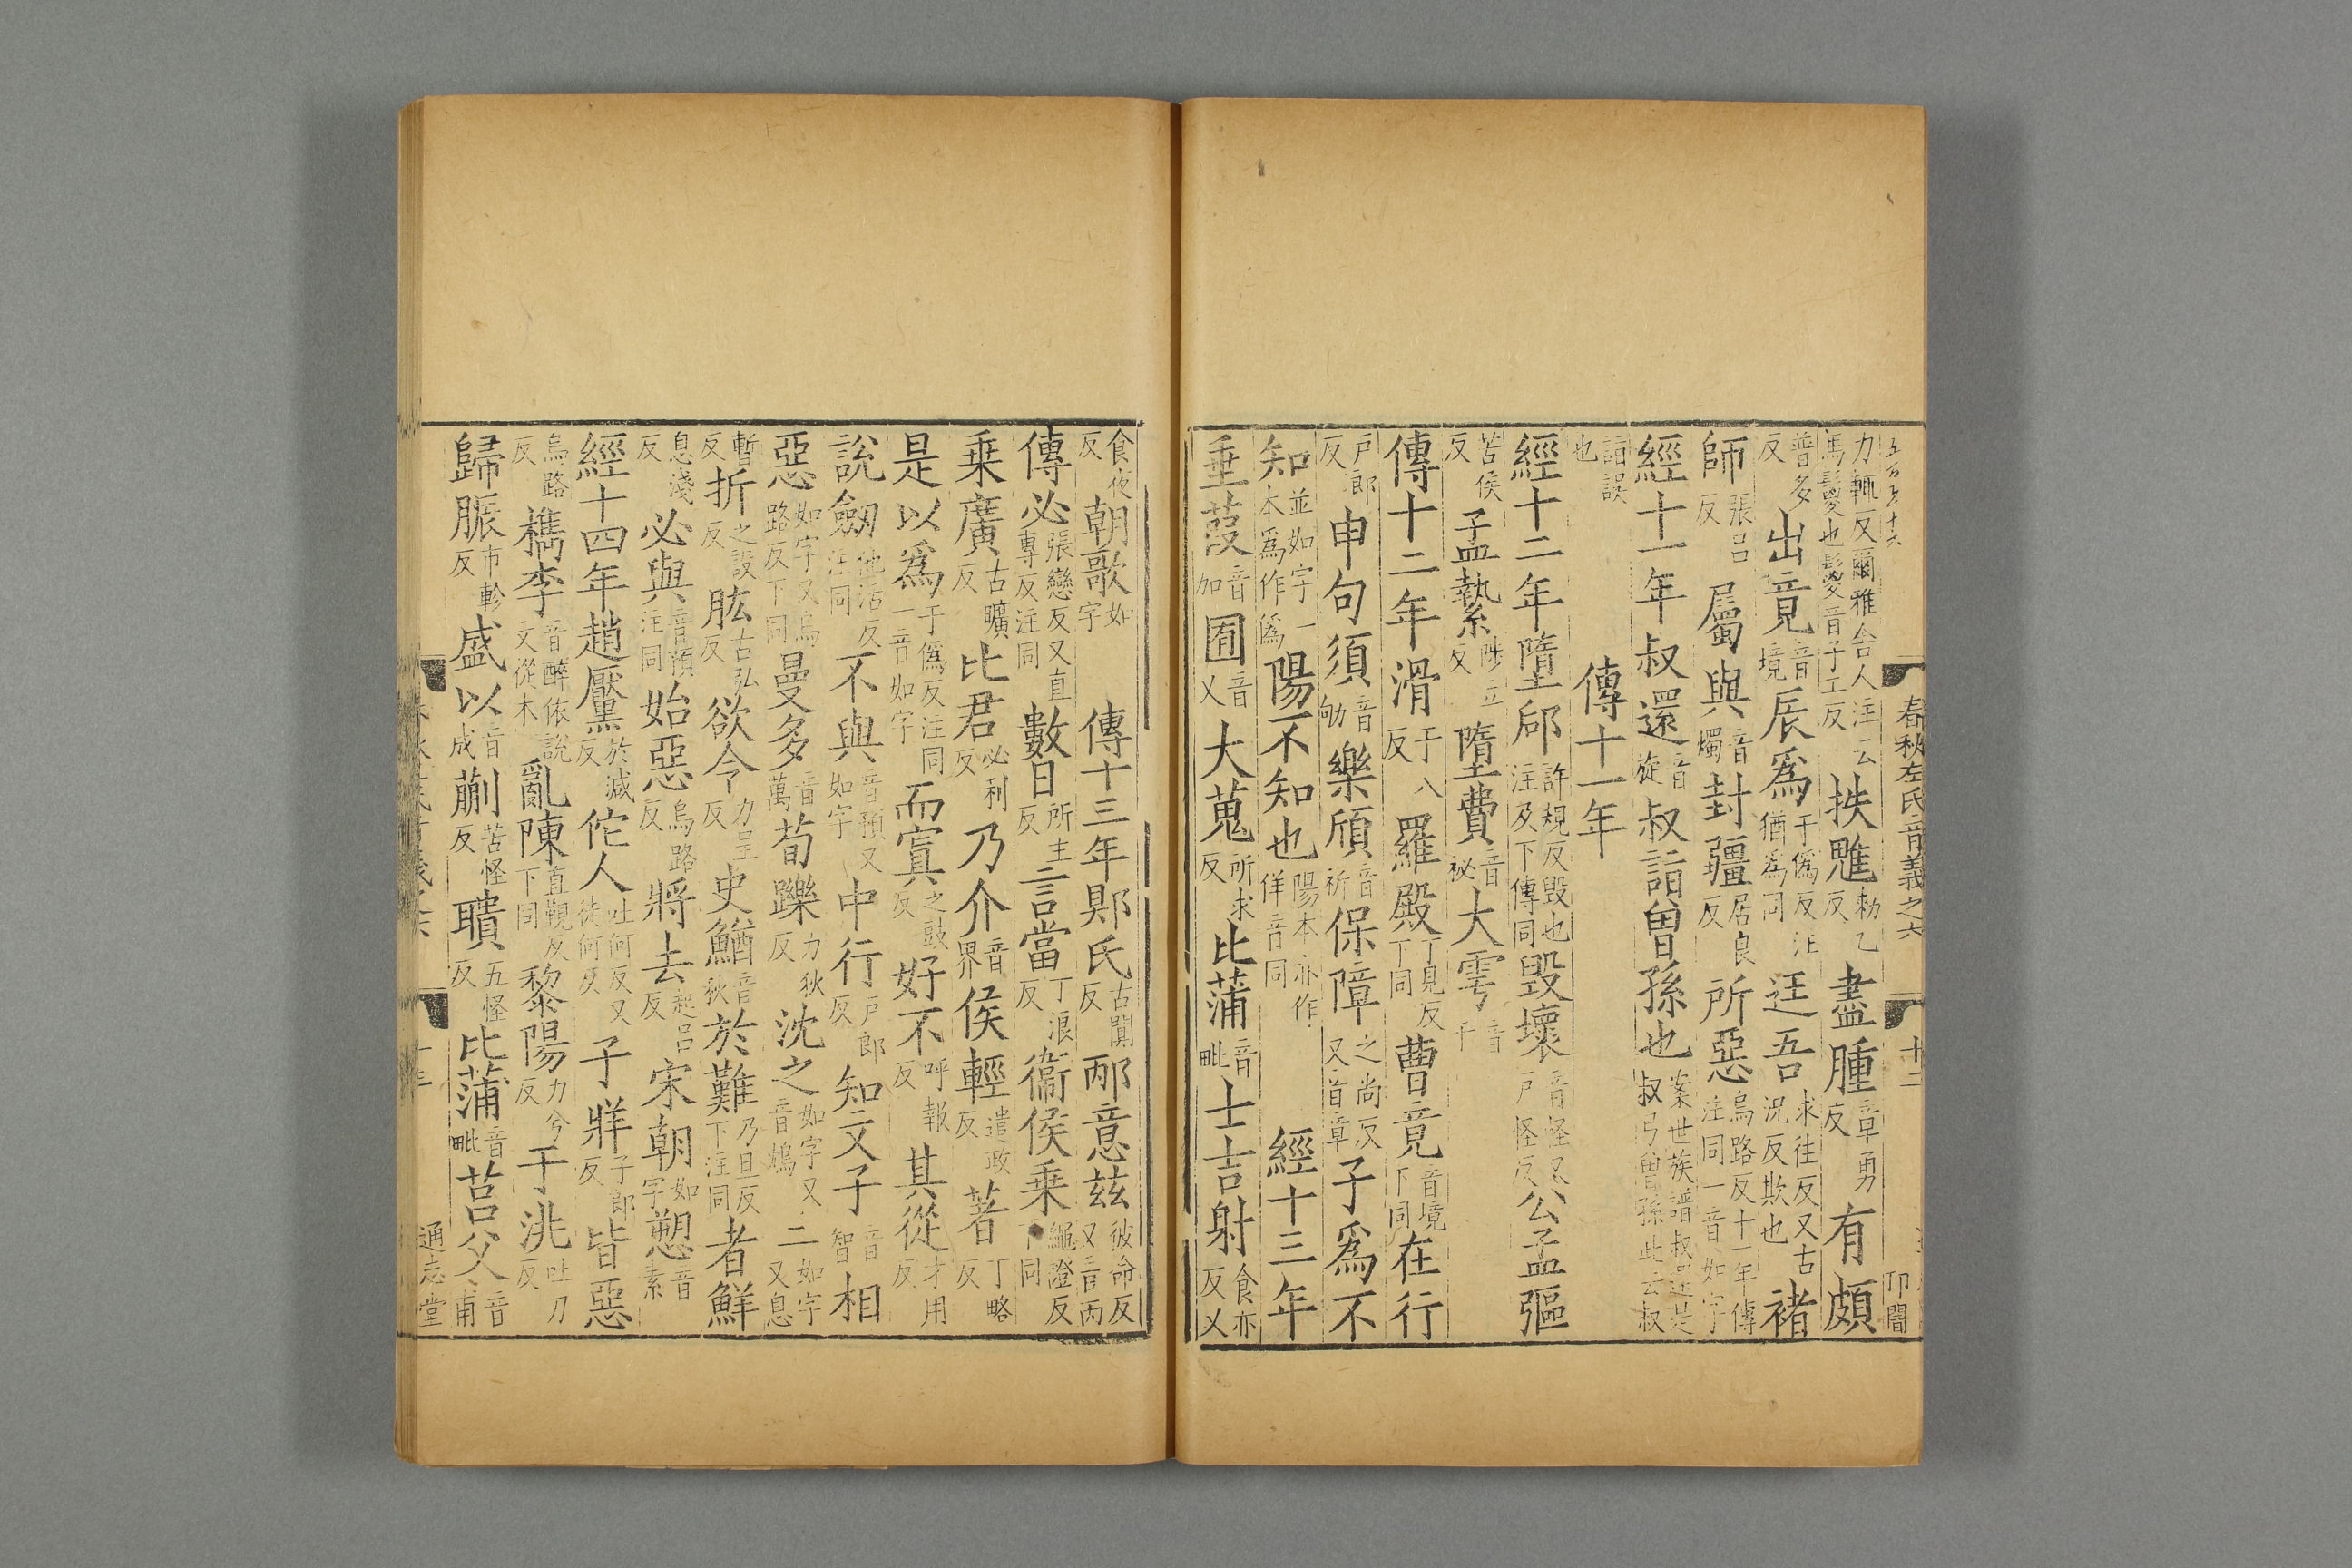 春秋左氏音義之六 十二
力輒反爾雅舍人注云馬鬉也鬉音子工反 抶魋敕乙反 盡腫章勇反 有頗
普多反 出竟音境 辰爲于僞反注猶爲同 迋吾求往反又古況反欺也 褚
師張呂反 屬與音燭 封疆居良反 所惡烏路反十一年傳注同一音如字
經十一年叔還音旋 叔詣曾孫也案世族譜叔還是叔弓曾孫此云叔
詣誤也 傳十一年
經十二年墮郈許規反毀也注及下傳同 毀壞音怪 户怪反 公孟彄
苦侯反 孟縶陟立反 墮費音祕 大雩音于
傳十二年滑于八反 羅殿丁見反下同 曹竟音境下同 在行
户郎反 申句須音劬 樂頎音祈 保障之尚反又音章 子爲不
知並如字一本爲作僞 陽不知也陽本亦作佯音同 經十三年
垂葭音加 囿音又 大蒐所求反 比蒲音毗 士吉射食亦反又
食夜反 朝歌如字 傳十三年郹氏古闃反 邴意茲彼命反又音丙
傳必張戀反又直專反注同 數日所主反 言當丁浪反 衞侯乘繩證反下同
乘廣古曠反 比君必利反 乃介音界 侯輕遣政反 著丁略反
是以爲于僞反注同一音如字 而寘之豉反 好不呼報反 其從才用反
說劒他活反注同 不與音預又如字 中行户郎反 知文子音智 相
惡如字又烏路反下同 曼多音萬 荀躒力狄反 沈之如字又音鴆 二如字又息
暫反 折之設反 肱古弘反 欲令力呈反 史鰌音秋 於難乃旦反下注同 者鮮
息淺反 必與音預注同 始惡烏路反 將去起呂反 宋朝如字 愬音素
經十四年趙黶於減反 佗人吐何反又徒何反 子牂子郎反 皆惡
烏路反 檇李音醉依說文從木 亂陳直覲反下同 黎陽力兮反 于洮吐刀反
歸脤市軫反 盛以音成 蒯苦怪反 聵五怪反 比蒲音毗 莒父音甫
通志堂